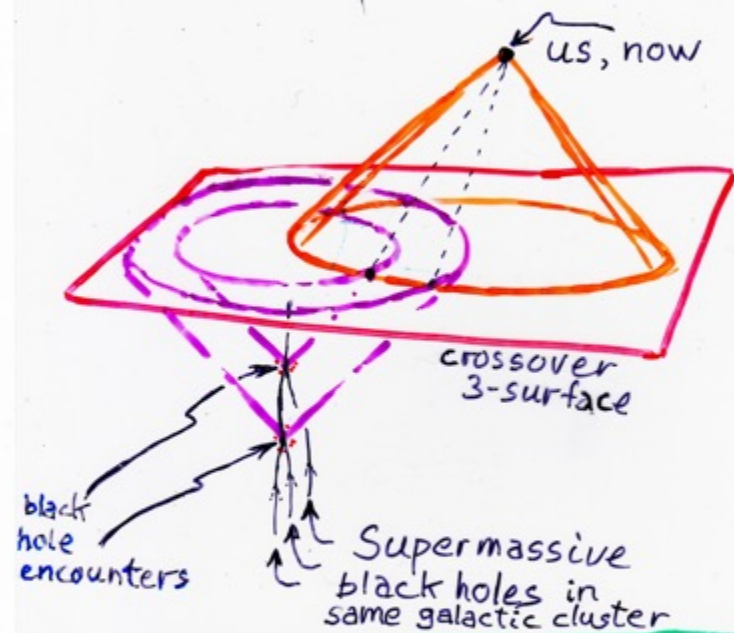 us, now
crossover
3-surface
black
hole
encounters
Supermassive
black holes in
same galactic cluster